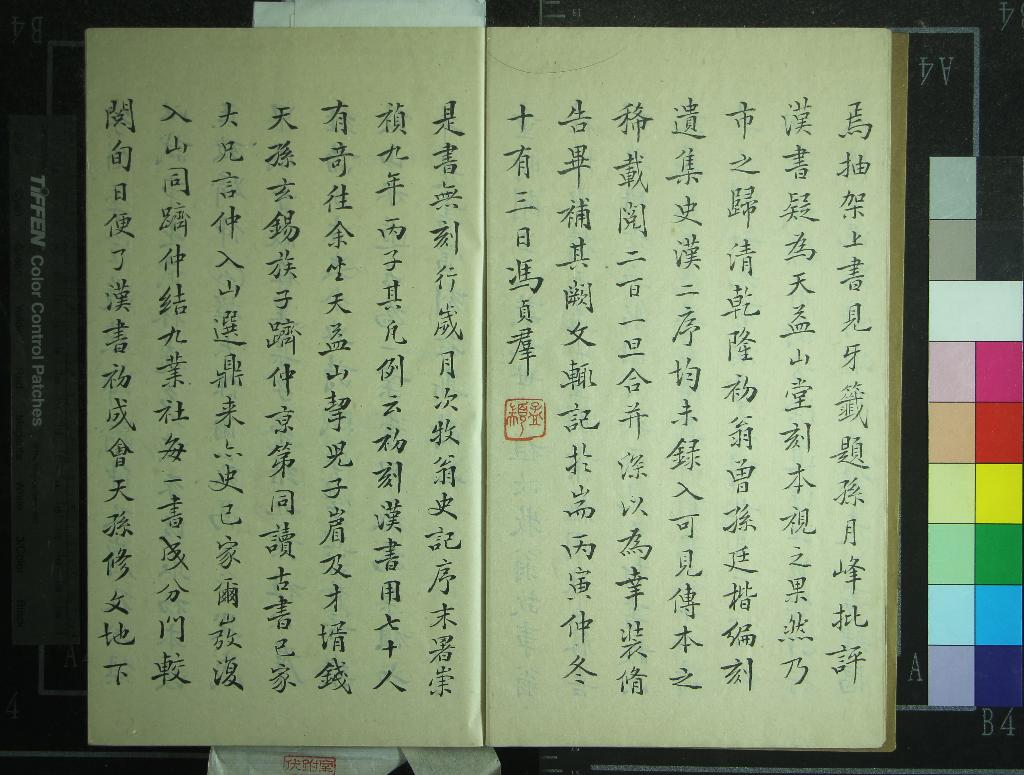 焉抽架上書見牙籤題孫月峰批評
漢書疑為天益山堂刻本視之果然乃
市之歸清乾隆初翁曾孫廷楷編刻
遺集史漢二序均未録入可見傳本之
稀載閲二百一旦合并深以為幸裝脩
告畢補其闕文輙記於耑丙寅仲冬
十有三日馮貞羣
是書無刻行歲月次牧翁史記序末署崇
禎九年丙子其凡例云初刻漢書用七十人
有奇往余坐天益山挈兒子眉及才壻錢
天孫玄錫族子躋仲京第同讀古書已家
大兄言仲入山選鼎来亦史已家爾𢾾復
入山同躋仲結九業社每一書成分門較
閲旬日便了漢書初成會天孫修文地下
伏跗室
TIFFEN Color Control Patches
A4
B4
A
B4